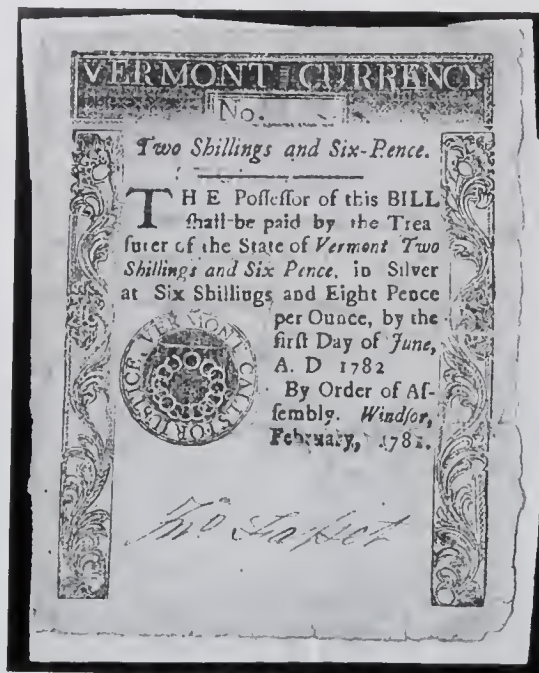 VERMONT CURRENCY
No.
Two Shillings and Six-Pence.
THE Poſſeſſor of this BILL
ſhall be paid by the Trea
ſurer of the State of Vermont Two
Shillings and Six Pence, in Silver
at Six Shillings and Eight Pence
per Ounce, by the
firſt Day of June,
A. D 1782
By Order of Aſ-
ſembly. Windſor,
February, 1781.
VERMONT CALLS FOR JUSTICE.